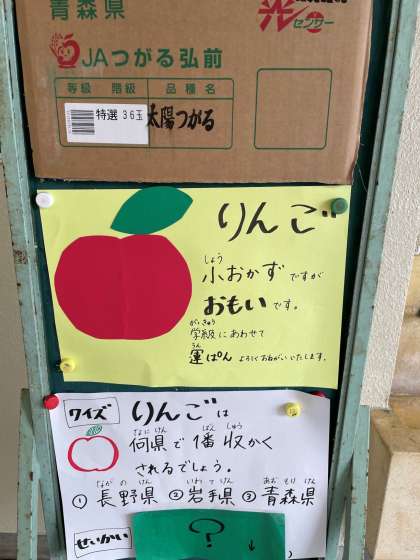 青森県
光センサー
JAつがる弘前
等級 階級 品種名
特選 36玉 太陽つがる
りんご
しょう
小おかずですが
おもいです。
がっきゅう
学級にあわせて
うん
運ぱんよろしくおねがいいたします。
クイズ りんごは
なにけん ばん しゅう
何県で1番収かく
されるでしょう。
ながの けん いわ て けん あお もり けん
①長野県 ②岩手県 ③青森県
せいかい
?
↓